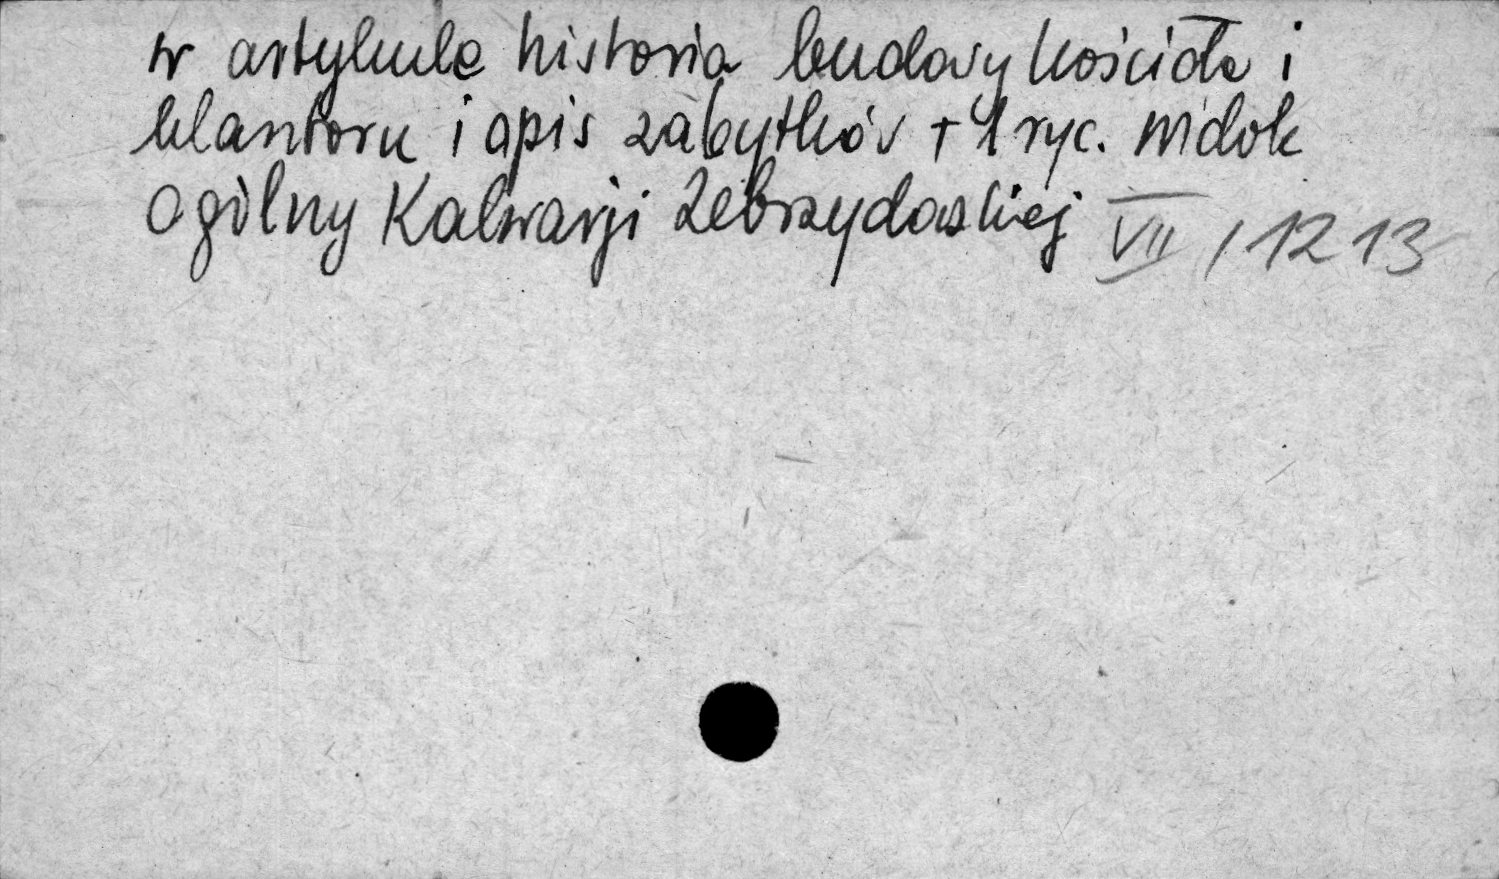 w artykule historia budowy kościoła i
klasztoru i opis zabytków + 1 ryc. widok
ogólny Kalwarji Zebrzydowskiej VII / 1213